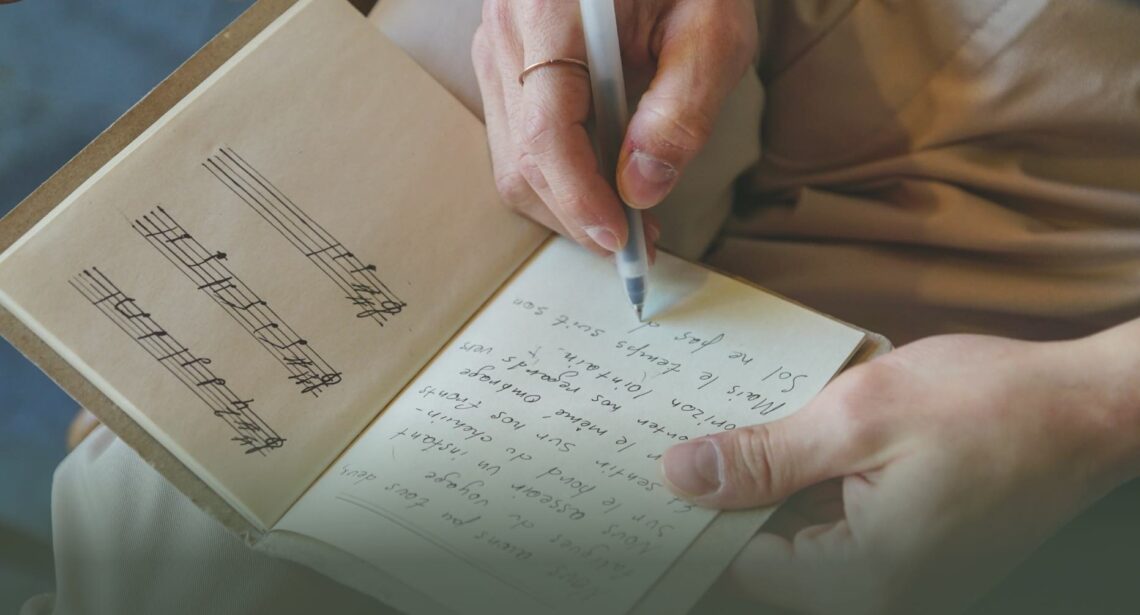 Nous avions pu tous deux
fatigués du voyage
Nous asseoir un instant
sur le bord du chemin-
Et sentir sur nos fronts
le même ombrage
nos regards vers
horizon lointain.
Mais le temps suit son
ne pas